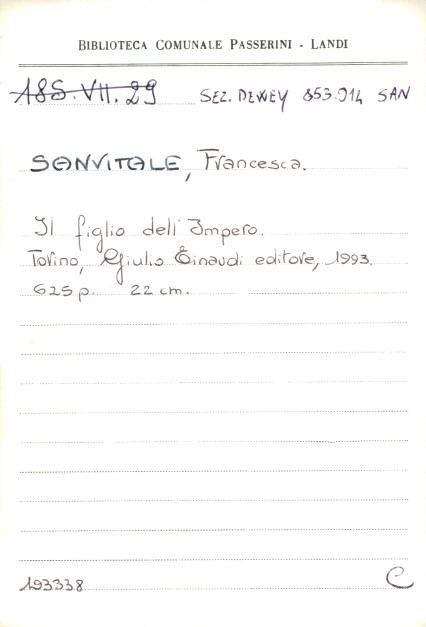 BIBLIOTECA COMUNALE PASSERINI - LANDI
18S.VII.29 SEZ. DEWEY 853.914 SAN
SANVITALE, Francesca.
Il figlio dell'Impero.
Torino, Giulio Einaudi editore, 1993.
625 p. 22 cm.
193338 C